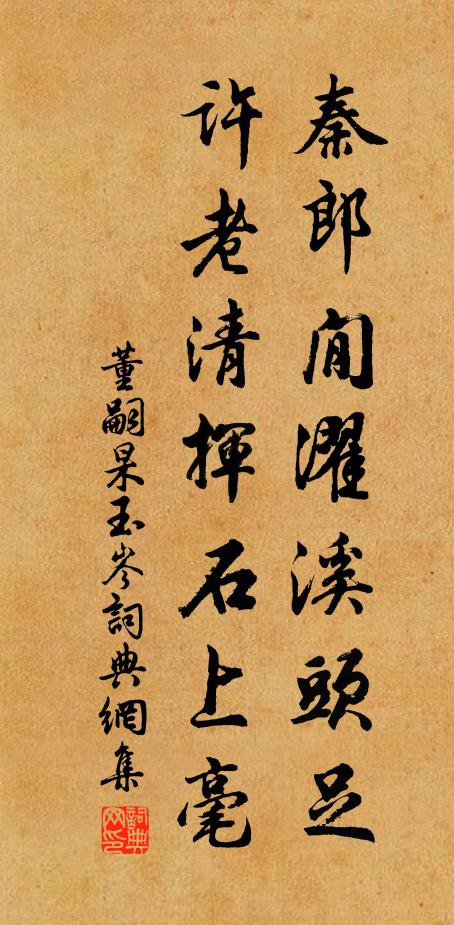 秦郎閒濯溪頭足
許老清揮石上毫
董嗣杲玉岑詞典網集
詞典網印